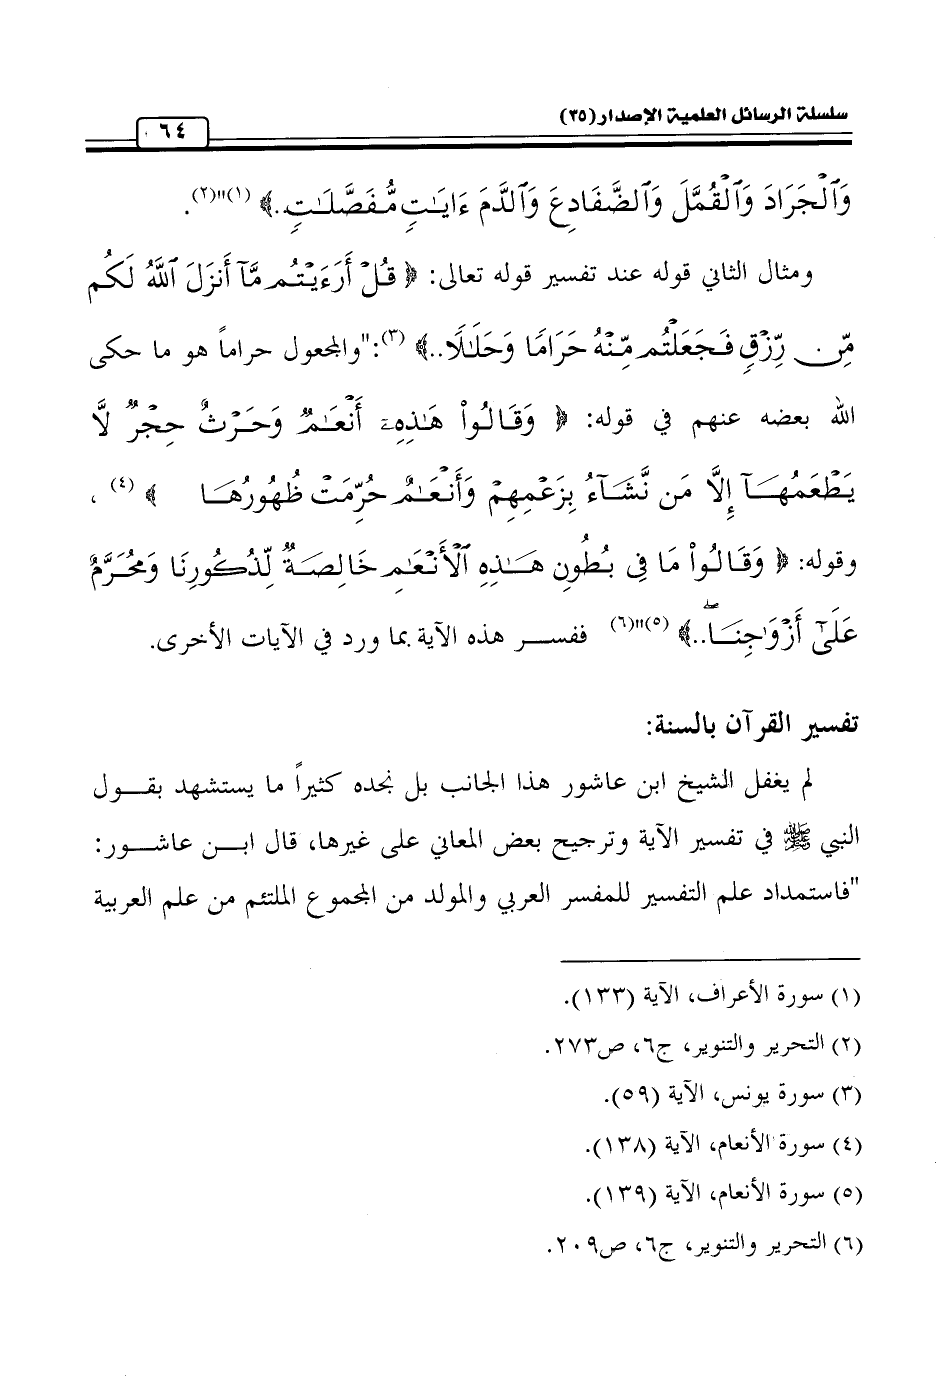 سلسلة الرسائل العلمية الإصدار(٣٥)
٦٤
وَٱلْجَرَادَ وَٱلْقُمَّلَ وَٱلضَّفَادِعَ وَٱلدَّمَ ءَايَٰتٍ مُّفَصَّلَٰتٍ..﴾ (١)"(٢).
ومثال الثاني قوله عند تفسير قوله تعالى: ﴿ قُلْ أَرَءَيْتُم مَّآ أَنزَلَ ٱللَّهُ لَكُم
مِّن رِّزْقٍ فَجَعَلْتُم مِّنْهُ حَرَامًا وَحَلَٰلًا..﴾ (٣):"والمجعول حراماً هو ما حكى
الله بعضه عنهم في قوله: ﴿ وَقَالُوا۟ هَٰذِهِۦٓ أَنْعَٰمٌ وَحَرْثٌ حِجْرٌ لَّا
يَطْعَمُهَآ إِلَّا مَن نَّشَآءُ بِزَعْمِهِمْ وَأَنْعَٰمٌ حُرِّمَتْ ظُهُورُهَا ﴾ (٤) ،
وقوله: ﴿ وَقَالُوا۟ مَا فِى بُطُونِ هَٰذِهِ ٱلْأَنْعَٰمِ خَالِصَةٌ لِّذُكُورِنَا وَمُحَرَّمٌ
عَلَىٰٓ أَزْوَٰجِنَا ۖ..﴾ (٥)"(٦) ففسر هذه الآية بما ورد في الآيات الأخرى.
تفسير القرآن بالسنة:
لم يغفل الشيخ ابن عاشور هذا الجانب بل نجده كثيراً ما يستشهد بقول
النبي ﷺ في تفسير الآية وترجيح بعض المعاني على غيرها، قال ابن عاشور:
"فاستمداد علم التفسير للمفسر العربي والمولد من المجموع الملتئم من علم العربية
(١) سورة الأعراف، الآية (١٣٣).
(٢) التحرير والتنوير، ج٦، ص٢٧٣.
(٣) سورة يونس، الآية (٥٩).
(٤) سورة الأنعام، الآية (١٣٨).
(٥) سورة الأنعام، الآية (١٣٩).
(٦) التحرير والتنوير، ج٦، ص٢٠٩.